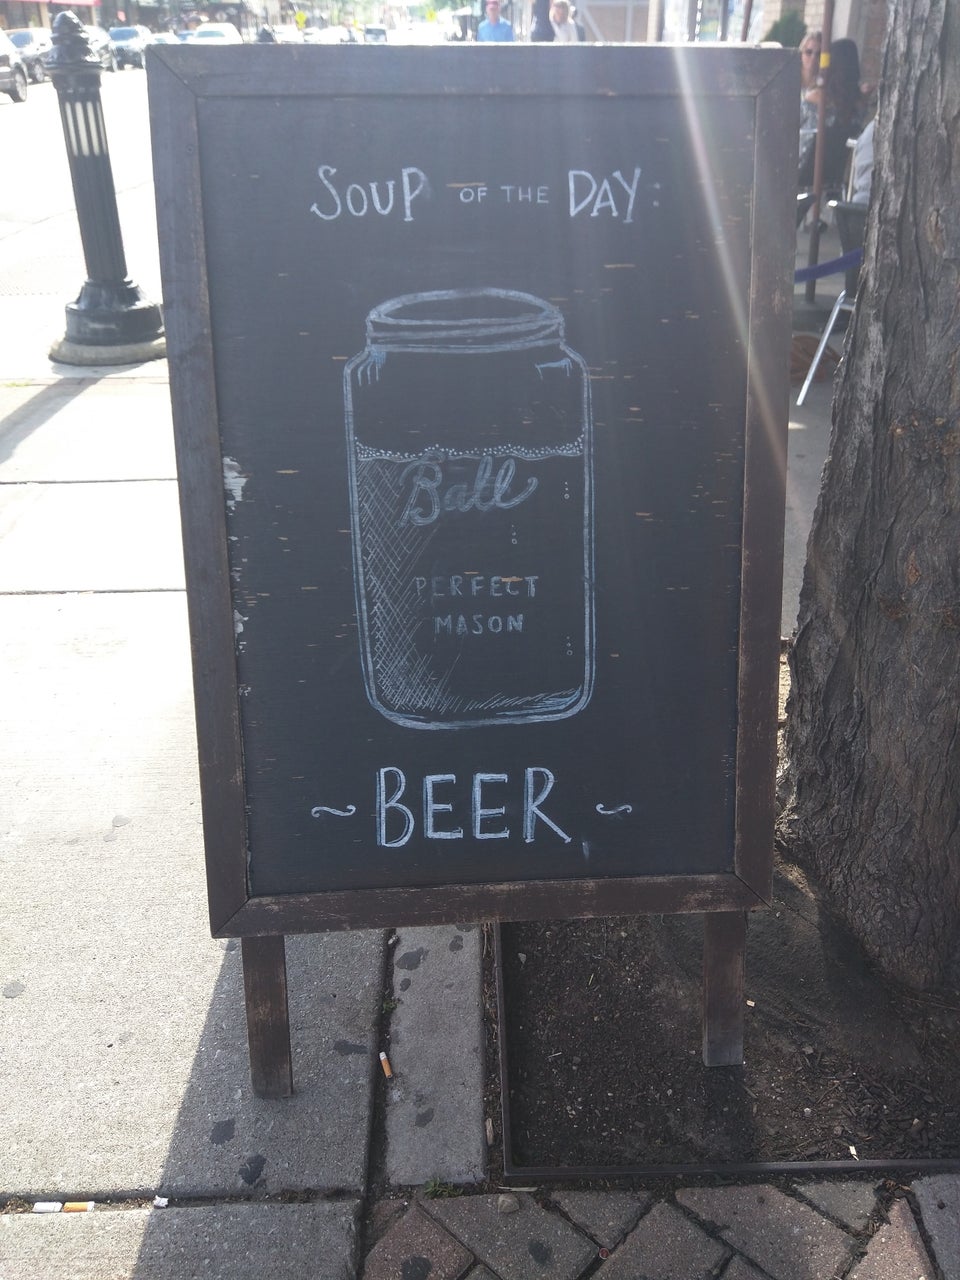 SOUP OF THE DAY:
Ball
PERFECT
MASON
~ BEER ~